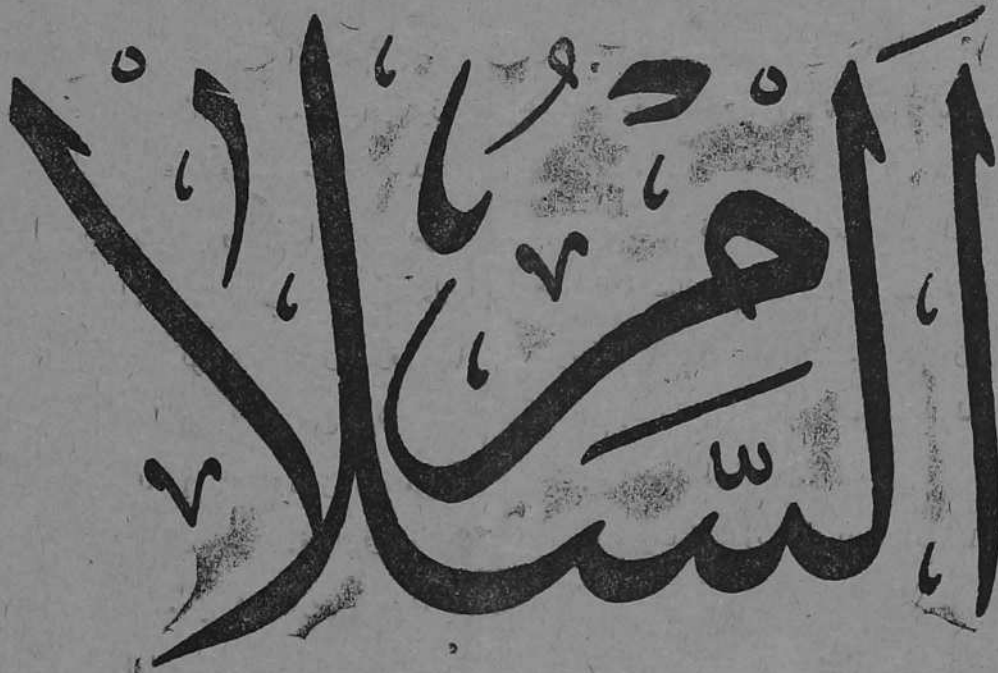 اَلسَّلَامُ